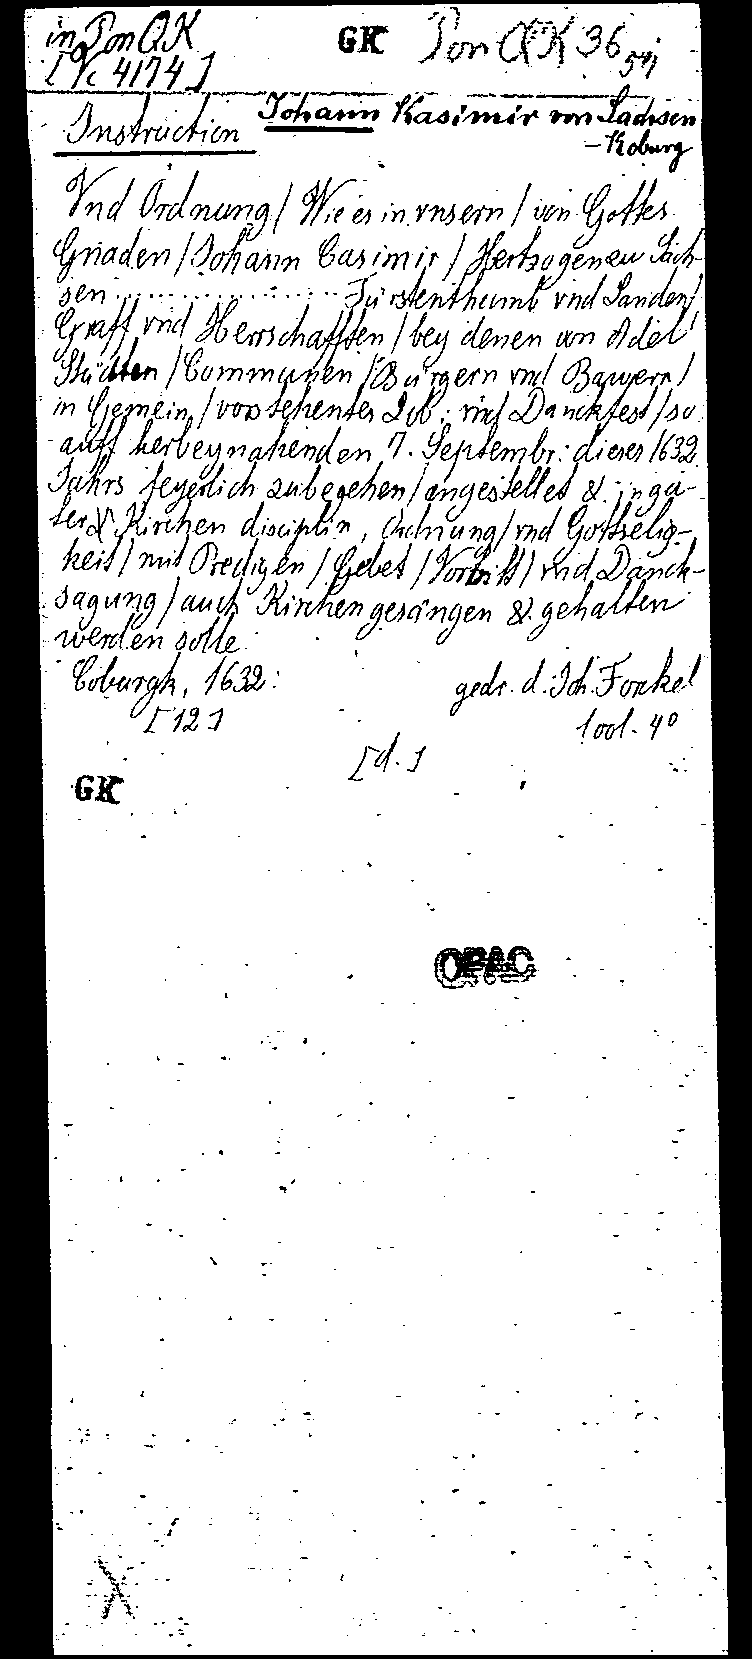 in Pon QK GK Pon QK 36
[Vc 4174]
Johann Kasimir von Sachsen
Instruction -Koburg
Vnd Ordnung / Wie es in vnsern / von Gottes
Gnaden / Johann Casimir / Hertzogen zu Sach-
sen .................. Fürstenthumb vnd Landen /
Graff vnd Herrschafften / bey denen von Adel
Städten / Communen / Bürgern vnd Bawern /
in Gemein / vorstehentes Lob: vnd Danckfest / so
auff herbeynahenden 7. Septembr: dieses 1632
Jahrs feyerlich zubegehen / angestellet & in gu-
ter Kirchen disciplin, Ordnung / vnd Gottselig-
keit / mit Predigen / Gebet / Vorbitt / vnd Danck-
sagung / auch Kirchengesängen & gehalten
werden solle
Coburgk, 1632: gedr. d. Joh. Forkel
[12] 4°
[d.]
GK
OPAC
X